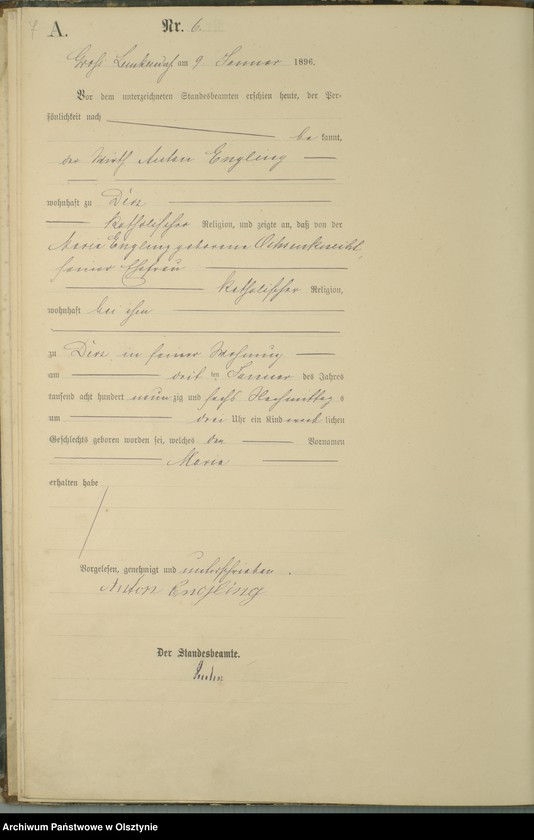 7 A.
Nr. 6.
Groß am 9 Januar 1896.
Vor dem unterzeichneten Standesbeamten erschien heute, der Per-
sönlichkeit nach
be kannt,
der Wirth Anton Engling
wohnhaft zu
katholischer Religion, und zeigte an, daß von der
Engling geborene Ochsenknecht,
seiner Ehefrau
katholischer Religion,
wohnhaft bei ihm
zu in seiner Wohnung
am drit ten Januar des Jahres
tausend acht hundert neun zig und sechs Nachmittag s
um drei Uhr ein Kind weib lichen
Geschlechts geboren worden sei, welches den Vornamen
Maria
erhalten habe
Vorgelesen, genehmigt und unterschrieben.
Anton Engling
Der Standesbeamte.
Archiwum Państwowe w Olsztynie